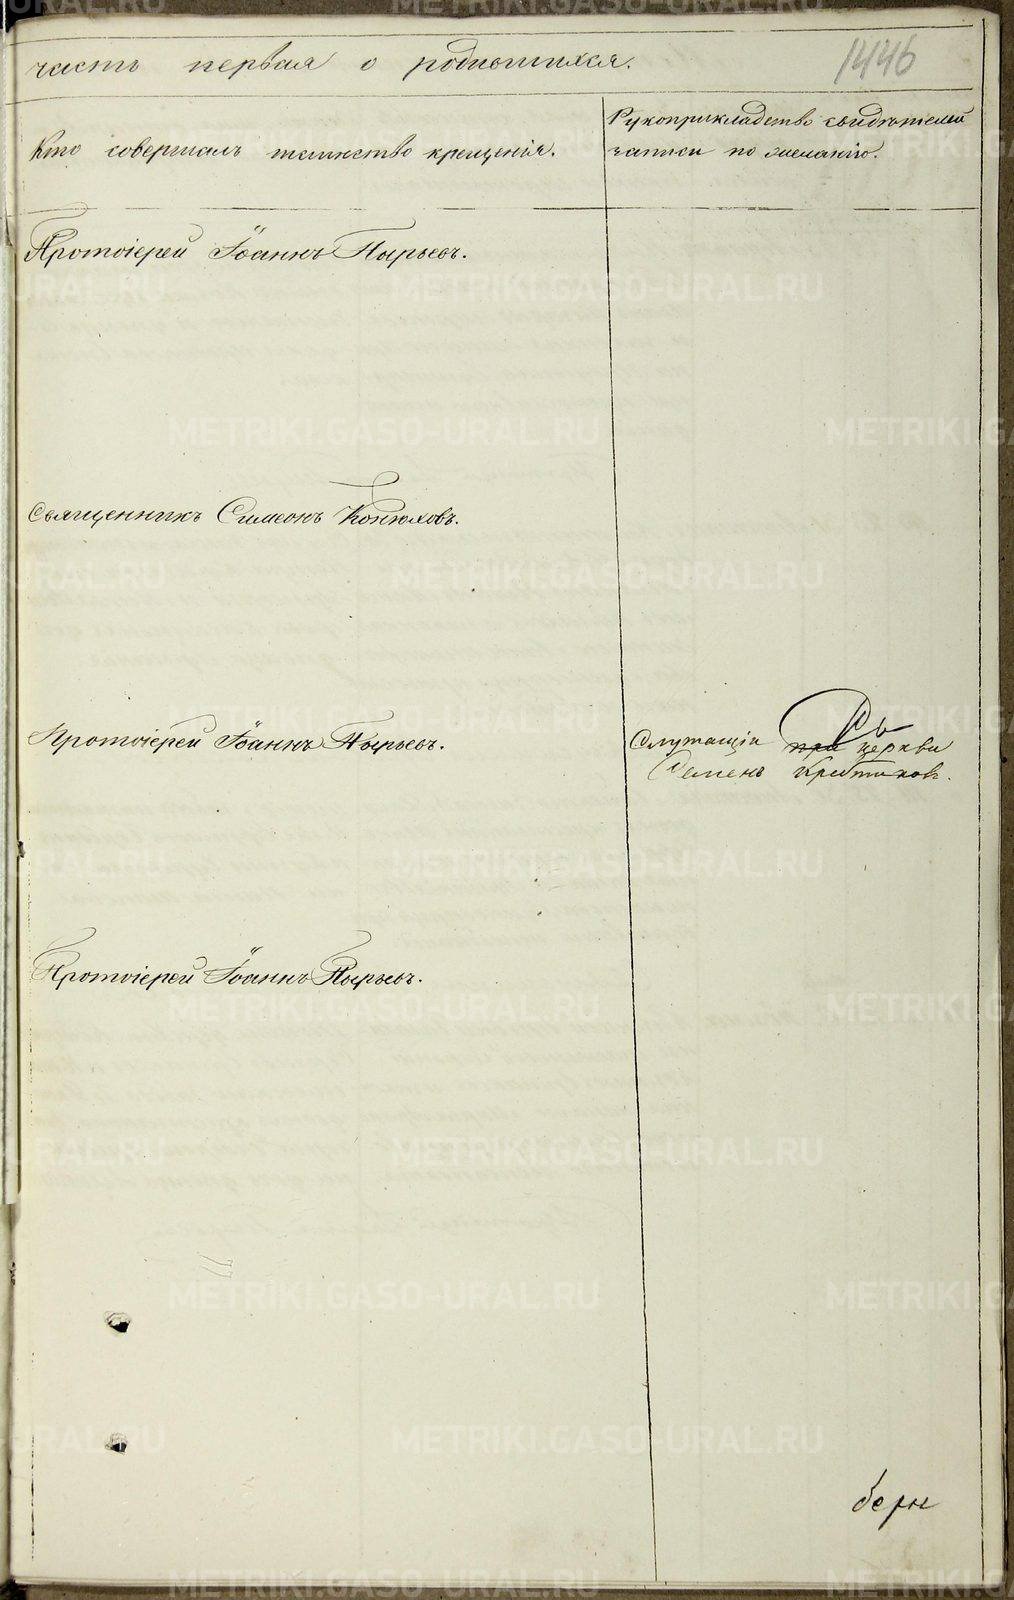 часть первая о родившихся.
1446
Кто совершалъ таинство крещенія.
Рукоприкладство свидѣтелей
записи по желанію.
Протоіерей Іоаннъ Пырьевъ.
Священникъ Симеонъ Конюховъ.
Протоіерей Іоаннъ Пырьевъ.
Служащіи при церкви
Семенъ
Протоіерей Іоаннъ Пырьевъ.
METRIKI.GASO-URAL.RU